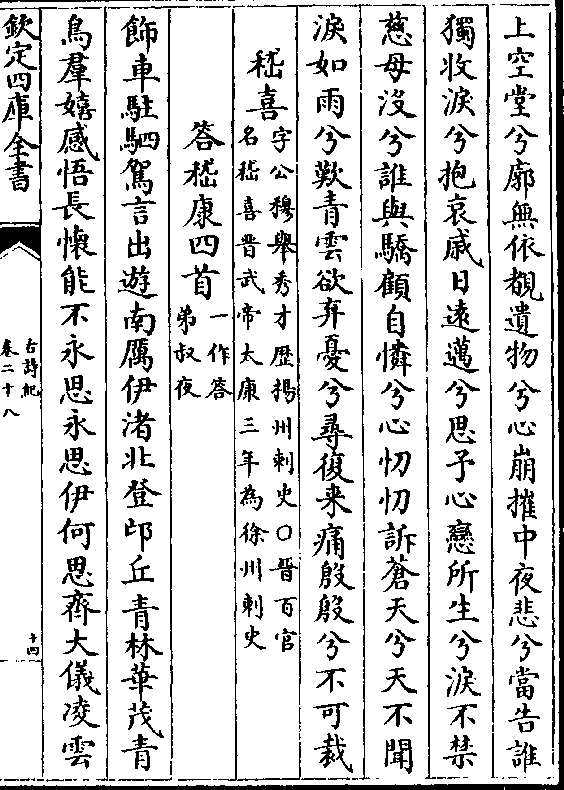 上空堂兮廓無依覩遺物兮心崩摧中夜悲兮當告誰
獨收淚兮抱哀戚日遠邁兮思予心戀所生兮淚不禁
慈母沒兮誰與驕顧自憐兮心忉忉訴蒼天兮天不聞
淚如雨兮歎青雲欲弃憂兮尋復来痛殷殷兮不可裁
嵇喜字公穆舉秀才歴揚州刺史○晉百官
名嵇喜晋武帝太康三年為徐州刺史
答嵇康四首一作答
弟叔夜
飾車駐駟駕言出遊南厲伊渚北登邙丘青林華茂青
鳥羣嬉感悟長懷能不永思永思伊何思齊大儀凌雲
欽定四庫全書
古詩紀
卷二十八
十四